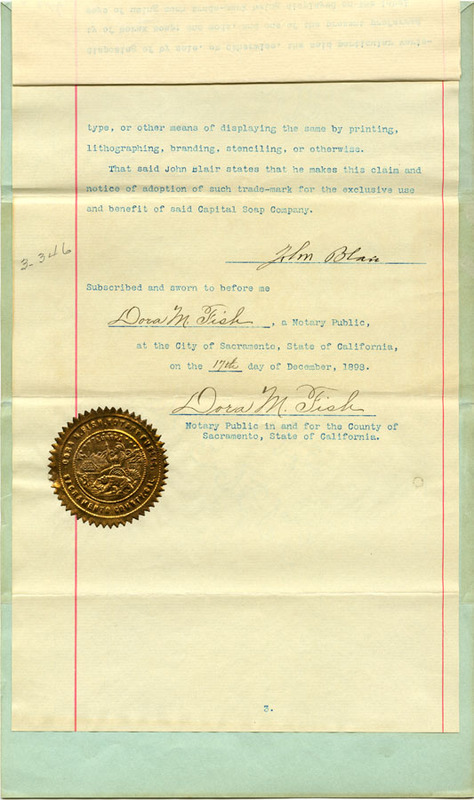 type, or other means of displaying the same by printing,
lithographing, branding, stenciling, or otherwise.
That said John Blair states that he makes this claim and
notice of adoption of such trade-mark for the exclusive use
and benefit of said Capital Soap Company.
3-346
John Blair
Subscribed and sworn to before me
Dora M. Fish, a Notary Public,
at the City of Sacramento, State of California,
on the 17th day of December, 1898.
Dora M. Fish
Notary Public in and for the County of
Sacramento, State of California.
3.